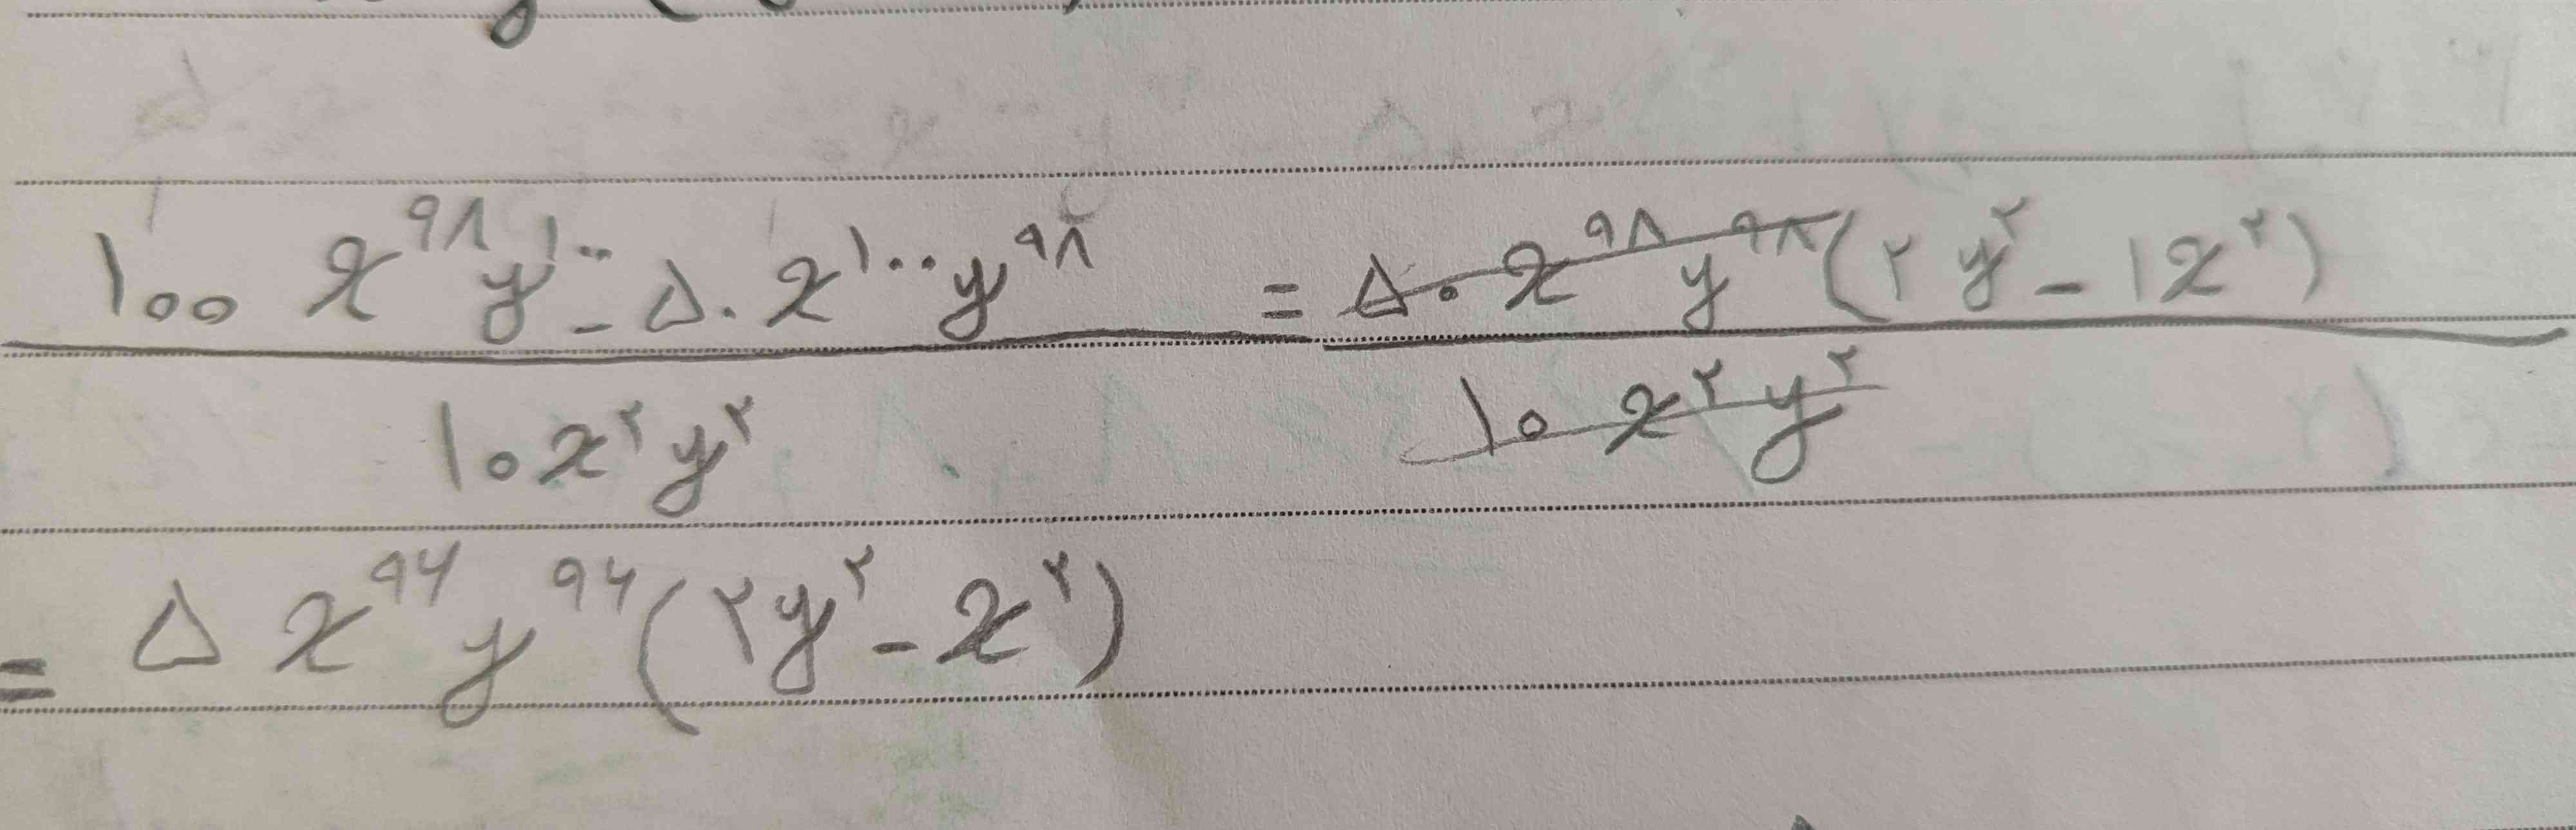 ۱۰۰ x^۹۸ y^۱۰۰ - ۵۰ x^۱۰۰ y^۹۸ / ۱۰ x^۲ y^۲ = ۵۰ x^۹۸ y^۹۸ (۲y^۲ - ۱x^۲) / ۱۰ x^۲ y^۲
= ۵ x^۹۶ y^۹۶ (۲y^۲ - x^۲)